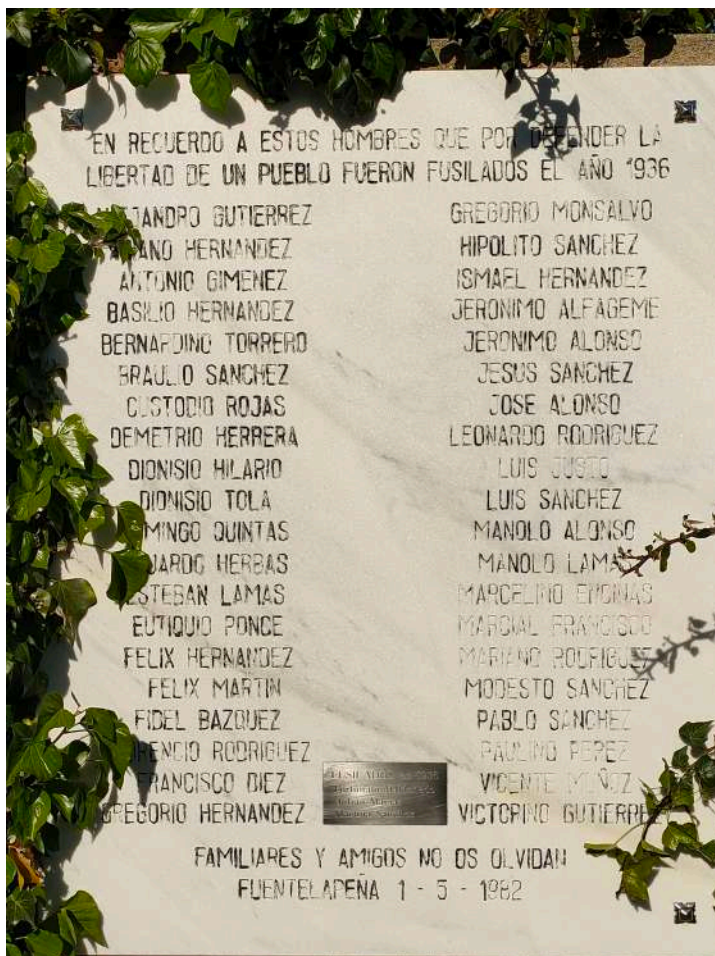 EN RECUERDO A ESTOS HOMBRES QUE POR DEFENDER LA
LIBERTAD DE UN PUEBLO FUERON FUSILADOS EL AÑO 1936
GUTIERREZ
HERNANDEZ
ANTONIO GIMENEZ
BASILIO HERNANDEZ
BERNARDINO TORRERO
BRAULIO SANCHEZ
CUSTODIO ROJAS
DEMETRIO HERRERA
DIONISIO HILARIO
DIONISIO TOLA
QUINTAS
HERBAS
ESTEBAN LAMAS
EUTIQUIO PONCE
FELIX HERNANDEZ
FELIX MARTIN
FIDEL BAZQUEZ
RODRIGUEZ
FRANCISCO DIEZ
GREGORIO HERNANDEZ
GREGORIO MONSALVO
HIPOLITO SANCHEZ
ISMAEL HERNANDEZ
JERONIMO ALFAGEME
JERONIMO ALONSO
JESUS SANCHEZ
JOSE ALONSO
LEONARDO RODRIGUEZ
LUIS JUSTO
LUIS SANCHEZ
MANOLO ALONSO
MANOLO LAMAS
MARCELINO ENCINAS
MARCIAL FRANCISCO
MARIANO RODRIGUEZ
MODESTO SANCHEZ
PABLO SANCHEZ
PAULINO PEREZ
VICENTE MUÑOZ
VICTORINO GUTIERREZ
FUSILADOS en 1936
FAMILIARES Y AMIGOS NO OS OLVIDAN
FUENTELAPEÑA 1 - 5 - 1982